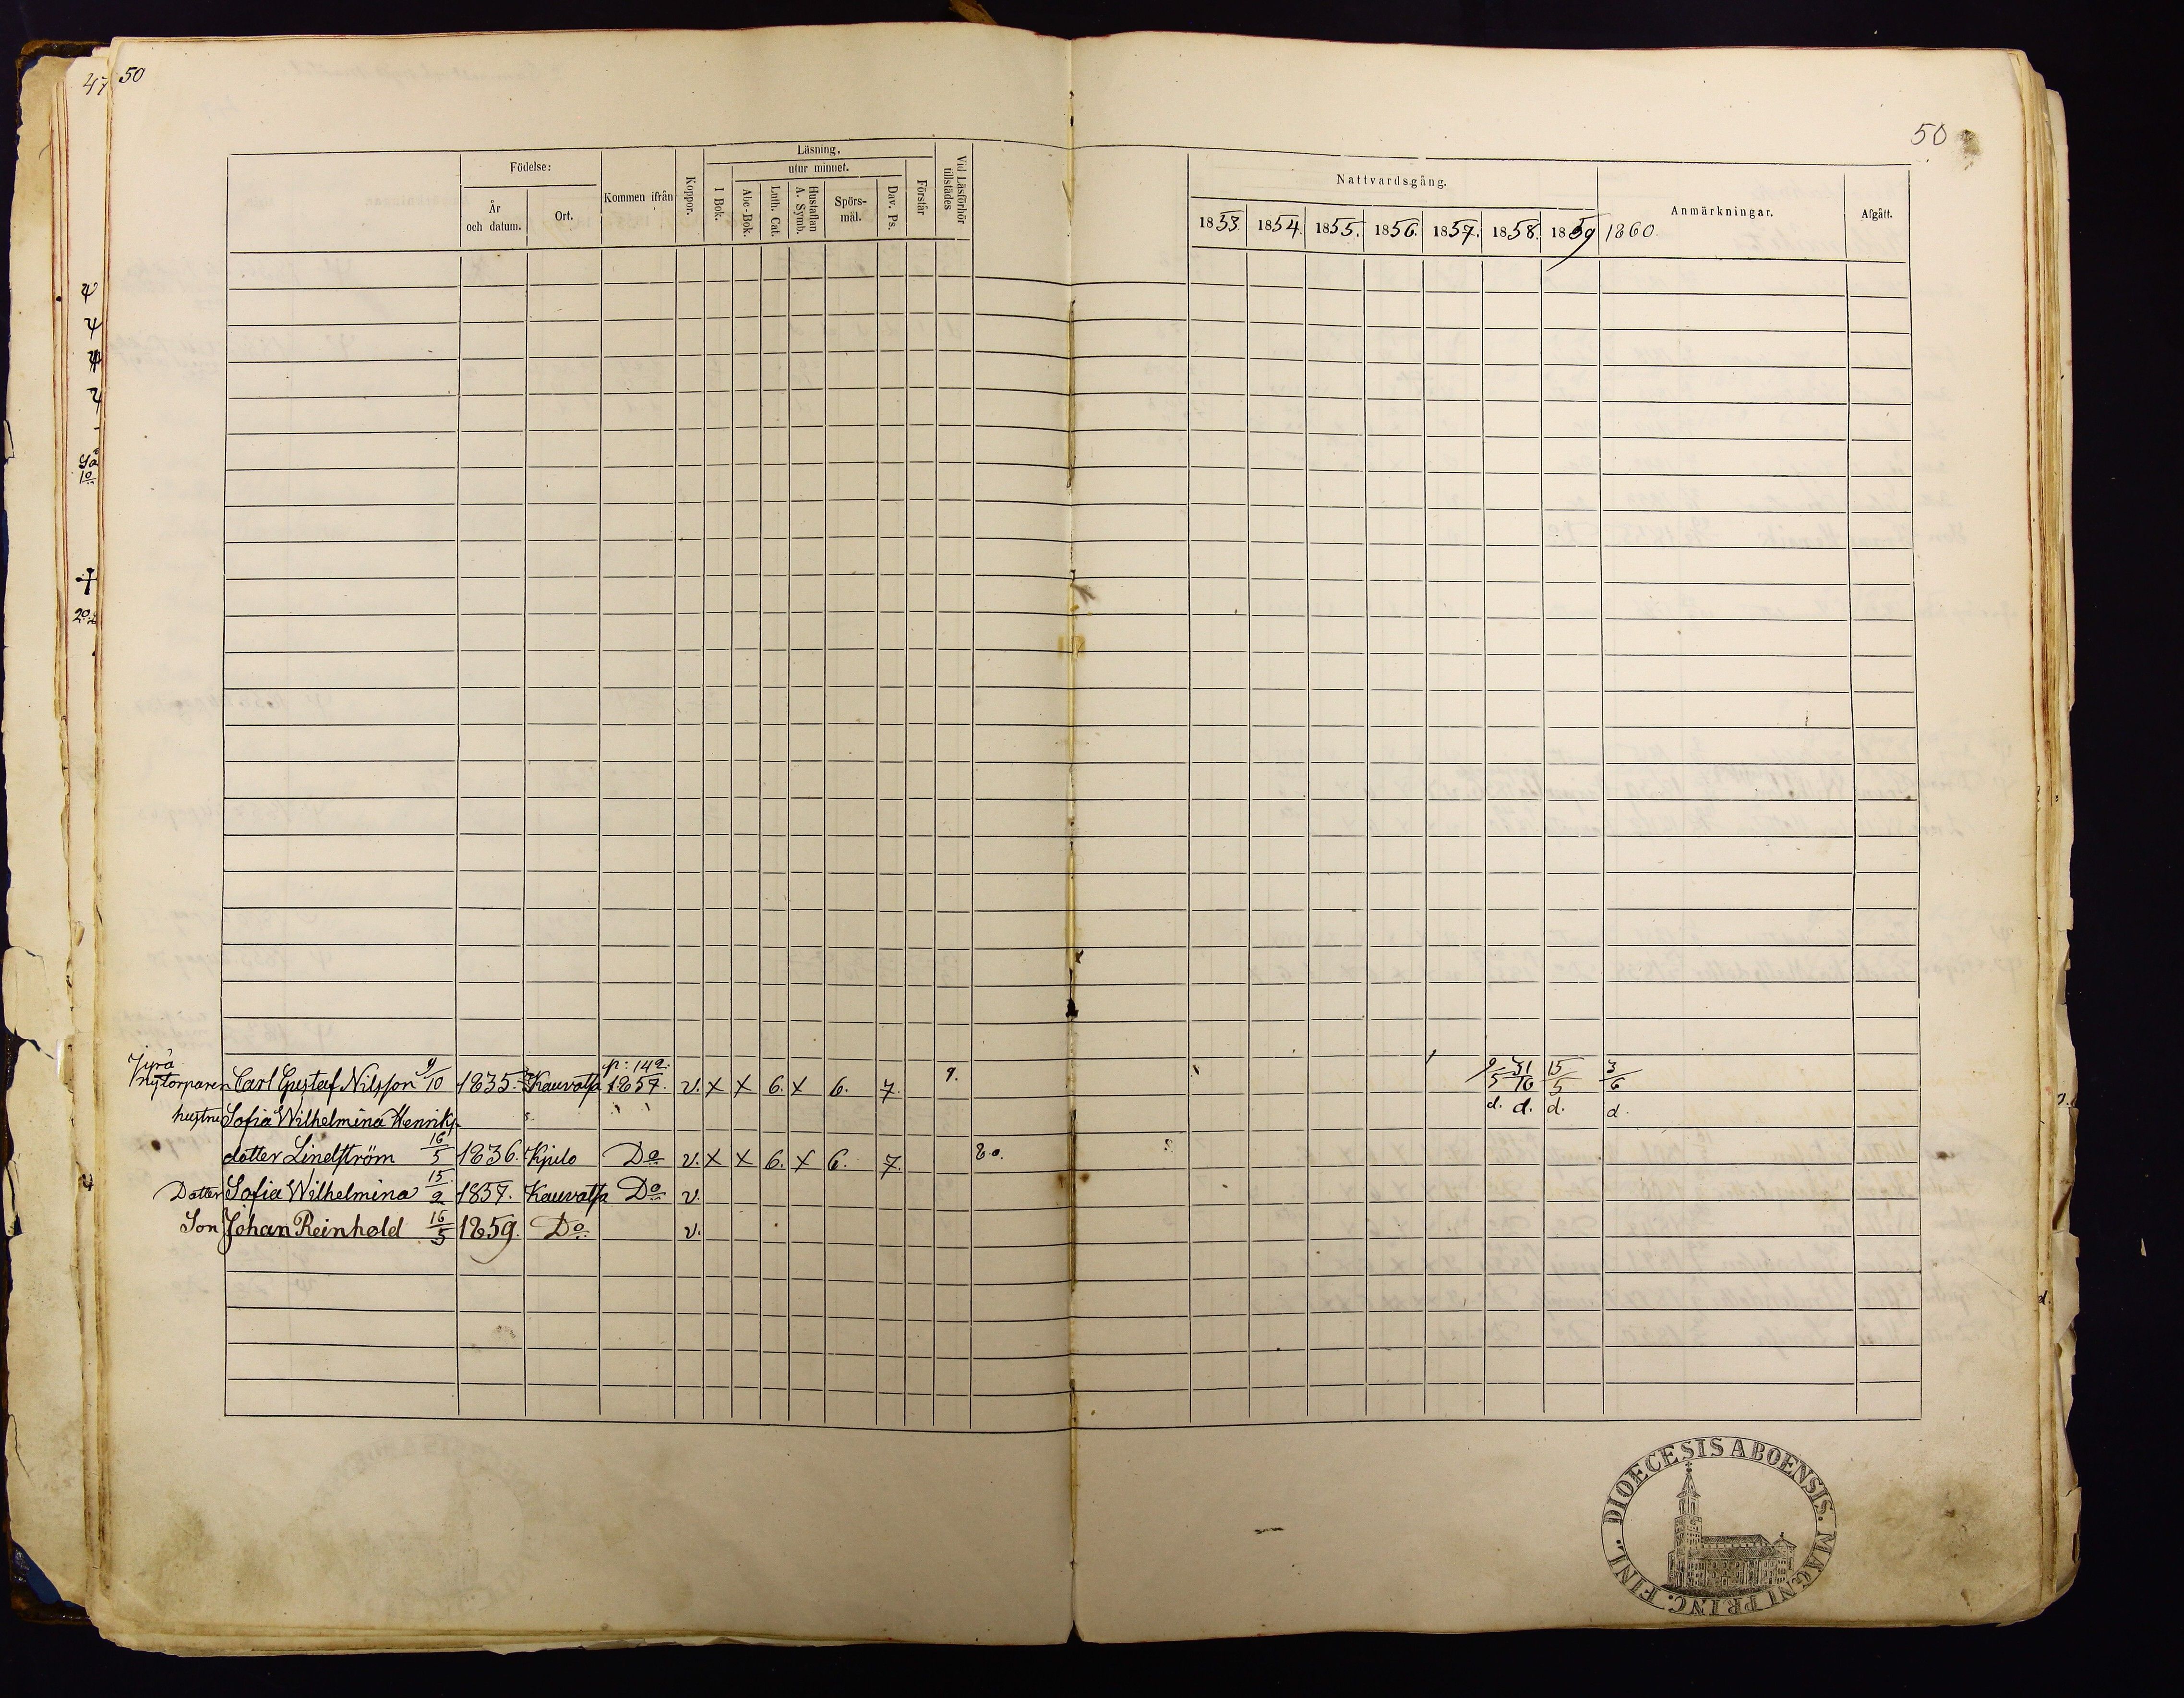 47 50
50
Födelse:
År och datum.
Ort.
Kommen ifrån
Koppor.
Läsning,
utur minnet.
I Bok.
Abc-Bok.
Luth. Cat.
Hustaflan A. Symb.
Spörs-mål.
Dav. Ps.
Förstår
Vid Läsförhör tillstädes
Nattvardsgång.
1853. 1854. 1855. 1856. 1857. 1858. 1859 1860.
Anmärkningar.
Afgått.
p: 149.
nytorparen Carl Gustaf Nilsson 9/10 1835. Kauvatsa 1857. v. x x 6. x 6. 7. 9. 9/5 31/10 15/5 3/6
hustru Sofia Wilhelmina Henriks- d. d. d. d.
dotter Lindström 16/5 1836. Kjulo Do v. x x 6. x 6. 7. 80.
Dotter Sofia Wilhelmina 15/2 1857. Kauvatsa Do v.
Son Johan Reinhold 16/5 1859. Do v.
DIOECESIS ABOENSIS. MAGNI PRINC. FINL.